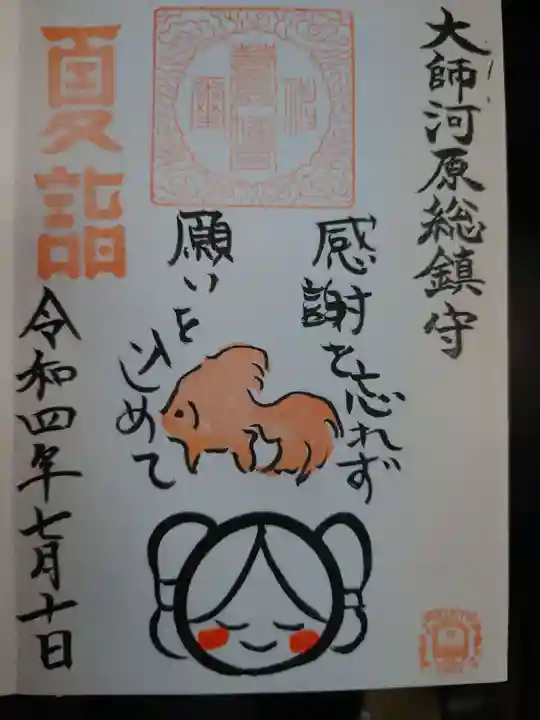 大師河原総鎮守
感謝を忘れず
願いを
込めて
夏詣
令和四年七月十日